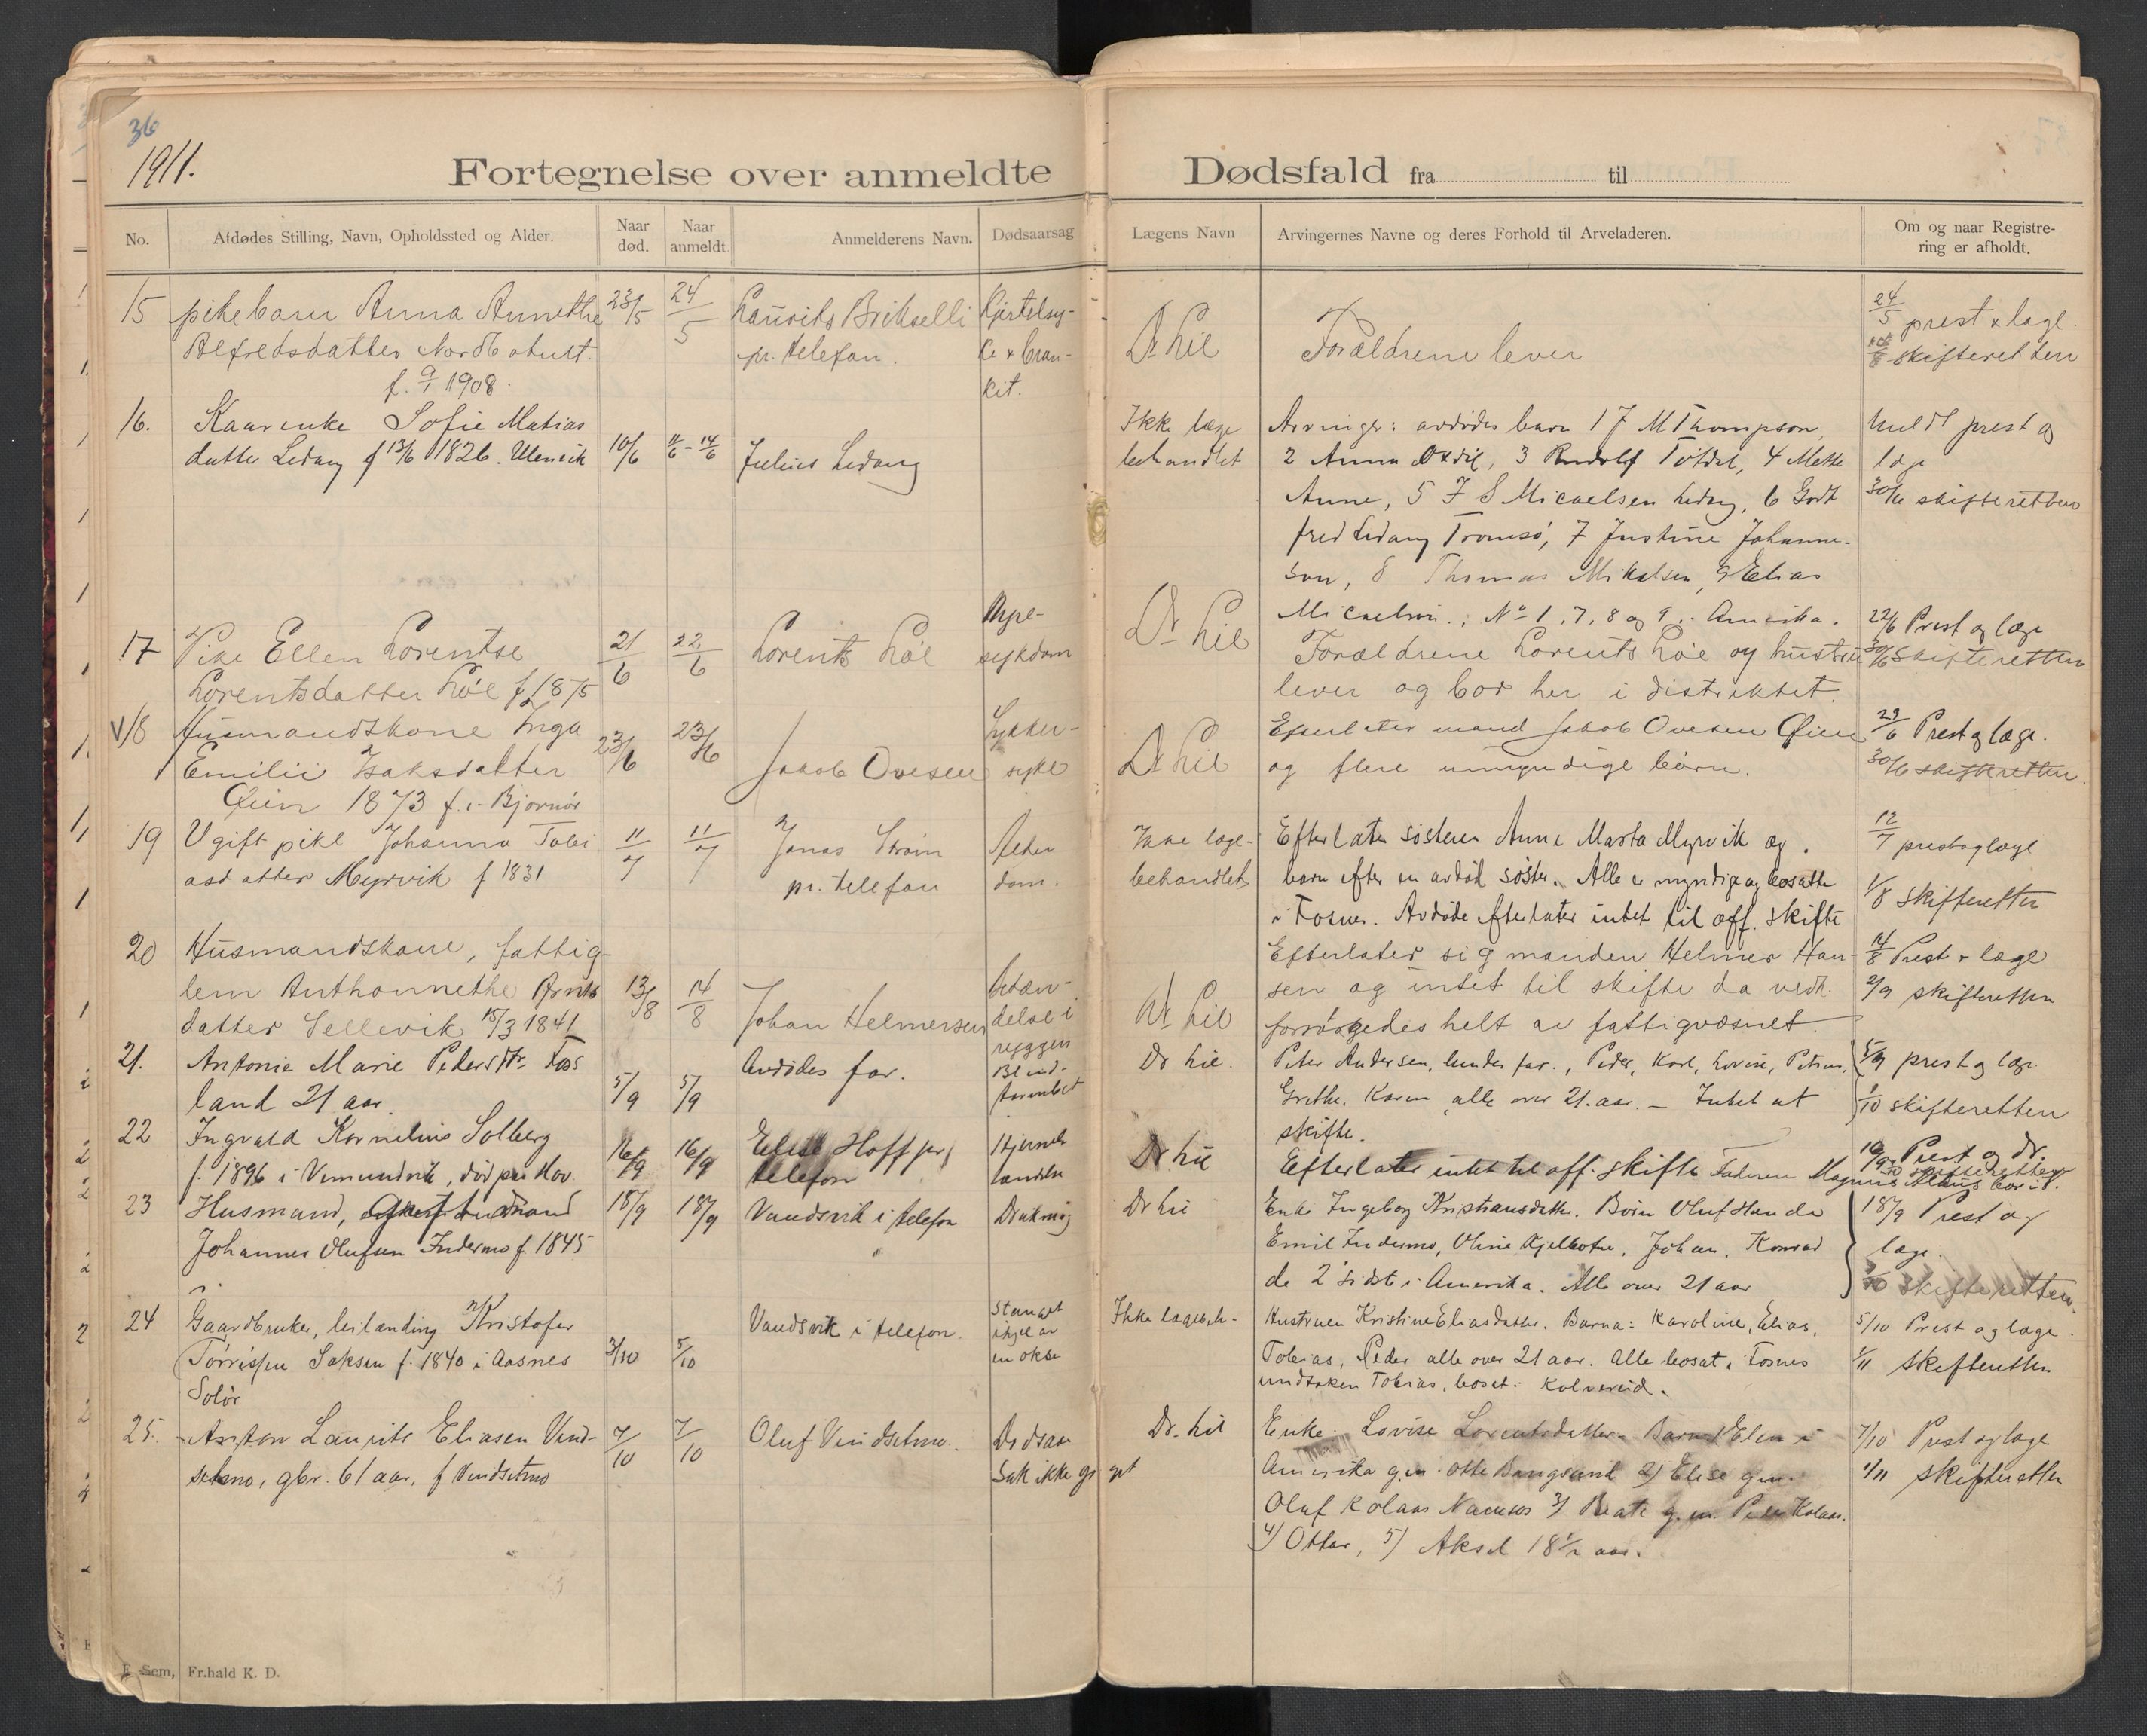 36
1911.
Fortegnelse over anmeldte Dødsfald fra til
No.
Afdødes Stilling, Navn, Opholdssted og Alder.
Naar død.
Naar anmeldt.
Anmelderens Navn.
Dødsaarsag
Lægens Navn
Arvingernes Navne og deres Forhold til Arveladeren.
Om og naar Registrering er afholdt.
15 pikebarn Anna Annethe 23/5 24/5 Laurits Brikselli Kjertelsy-
Alfredsdatter pr. telefon. ke & bron-
f. 9/1 1908. kit.
Dr Lie Forældrene lever
24/5 prest & læge.
skifteretten
16. Kaarenke Sofie Matias
datter Ledang f 13/6 1826. 10/6 11/6 - 14/6 Julius Ledang
Ikke læge Arvinger: avdødes barn 1 J M Thompson, meldt prest og
behandlet 2 Anna 3 Rudolf 4 Mette læge
Anne, 5 J S Micaelsen Ledang, 6 Godt 30/6 skifteretten
fred Ledang Tromsø, 7 Justine Johanne-
son, 8 Thomas Mikalsen, 9 Elias
Micaelsen., No 1, 7, 8 og 9 i Amerika.
17 Pike Ellen Lorentse 21/6 22/6 Lorents Løe
Lorentsdatter Løe f 1875 sykdom
Dr Lie Forældrene Lorents Løe og hustru
lever og bor her i distriktet.
22/6 Prest og læge
30/6 skifteretten
V18 Husmandskone Inga 23/6 23/6 Jakob Ovesen Sukker-
Emilie Isaksdatter syke
Øien 1873 f. i Bjørnør
Dr Lie Efterlater mand Jakob Ovesen Øien
og flere umyndige børn.
29/6 Prest og læge.
30/6 skifteretten.
19 Ugift pike Johanna Tobi 11/7 11/7 Jonas Strøm Alder
asdatter Myrvik f 1831 pr. telefon dom.
Ikke læge- Efterlater søsteren Anne Marta Myrvik og
behandlet barn efter en avdød søster. Alle er myndige og bosatte
i Fosnes. Avdøde efterlater intet til off. skifte
12/7 prest og læge
1/8 skifteretten
20 Husmandskone, fattig-
lem Anthonnethe Arnts 13/8 14/8 Johan Helmersen betæn-
datter Sellevik 15/3 1841 delse i
ryggen
Dr Lie Efterlater sig manden Helmer Han-
sen og intet til skifte da vedk.
forsørgedes helt av fattigvæsnet.
14/8 Prest & læge
2/9 skifteretten
21. Antonie Marie Pedersdtr. Fos 5/9 5/9 Avdødes far. Blind-
land 21 aar. tarmbet
Dr Lie. Peter Andersen, hendes far., Peder, Karl, Lovise, Petrine,
Grethe, Karen, alle over 21. aar. - Intet at
skifte.
5/9 prest og læge
1/10 skifteretten
22 Ingvald Kornelius Solberg 16/9 16/9 Elise Hoff per
f. 1896 i Vemundvik, død paa Hov. telefon
Dr Lie Efterlater intet til off. skifte Faderen
16/9 Prest og dr.
23 Husmand, 18/9 18/9 Vandsvik i telefon
Johannes Olufsen Indermo f. 1845
Dr Lie Enke Ingeborg Kristiansdatter. Børn Oluf
Emil Indermo, Oline Johan, Konrad
de 2 sidst i Amerika. Alle over 21 aar
18/9 Prest og
læge.
skifteretten.
24 Gaardbruker, leilænding Kristofer 3/10 5/10 Vandsvik i telefon. Stanget
Tørrissen Saksen f. 1840 i Aasnes ihjel av
Solør en okse
Ikke lægebeh- Hustruen Kristine Eliasdatter. Barna: Karoline, Elias,
Tobias, Peder alle over 21 aar. Alle bosat i Fosnes
undtaken Tobias, bosat i Kolvereid.
5/10 Prest og læge.
1/11 skifteretten
25. Anton Laurits Eliasen Vend- 7/10 7/10 Oluf Vendsetmo. Dødsaar
setmo, gbr. 61 aar, f Vendsetmo sak ikke op
get
Dr. Lie Enke Lovise Lorentsdatter Barn 1/ Elen i
Amerika g.m. Otto Bangsund 2/ Elise g.m.
Oluf Kolaas Namsos 3/ Beate g.m. Peder Kolaas.
4/ Ottar, 5/ Aksel 18½ aar.
7/10 Prest og læge
1/11 skifteretten
E Sem, Fr.hald K. D.